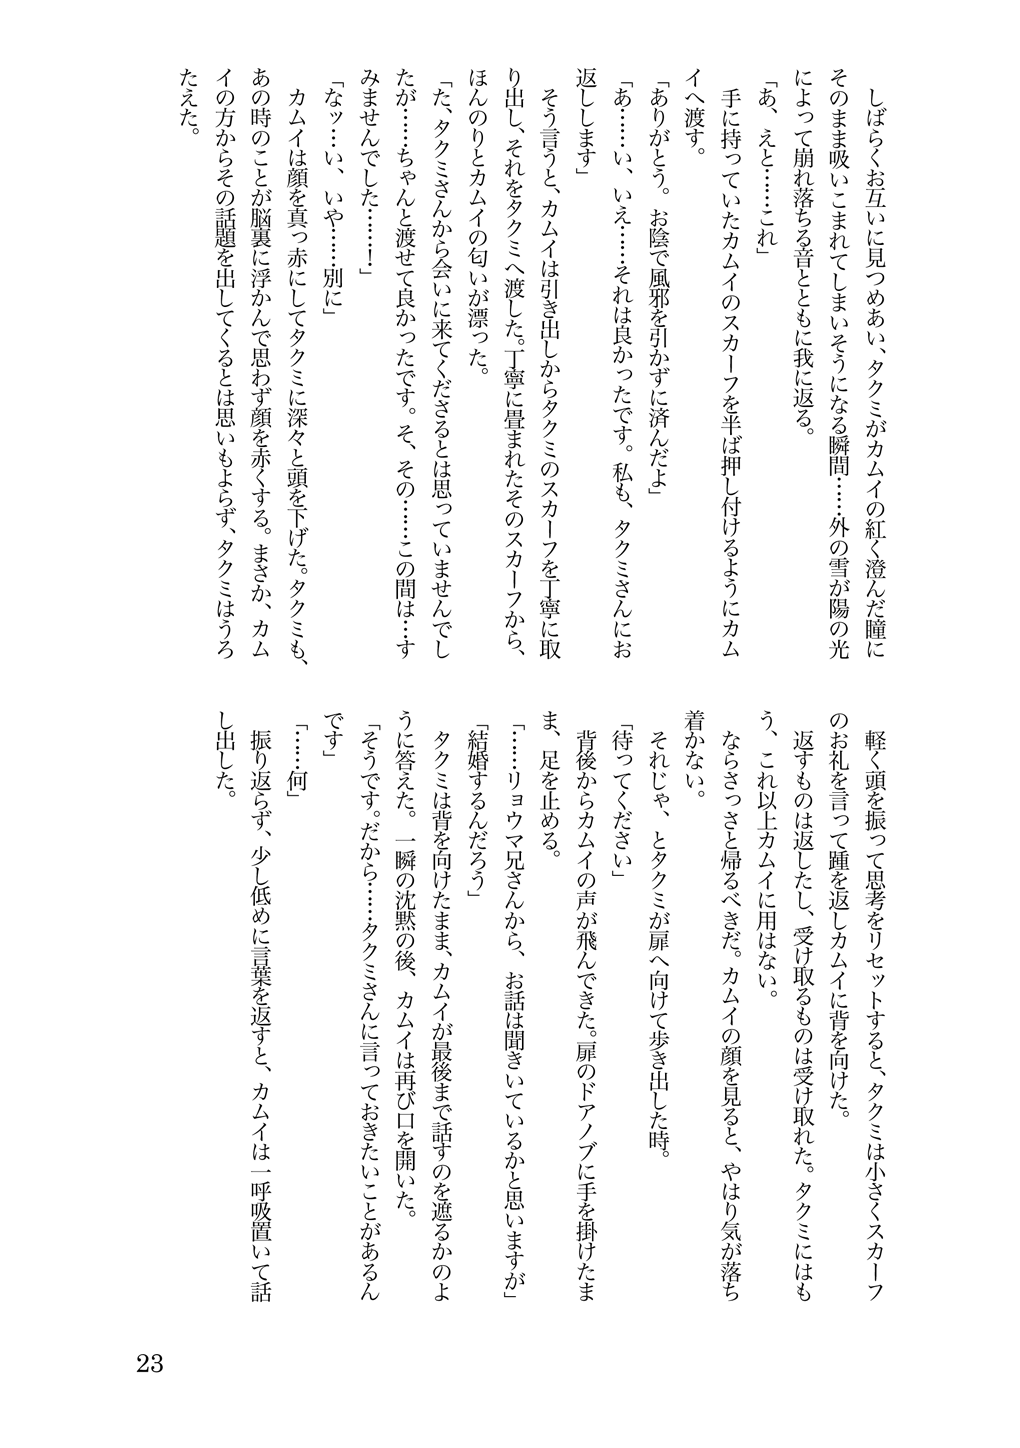 しばらくお互いに見つめあい、タクミがカムイの紅く澄んだ瞳に
そのまま吸いこまれてしまいそうになる瞬間……外の雪が陽の光
によって崩れ落ちる音とともに我に返る。
「あ、えと……これ」
　手に持っていたカムイのスカーフを半ば押し付けるようにカム
イへ渡す。
「ありがとう。お陰で風邪を引かずに済んだよ」
「あ……い、いえ……それは良かったです。私も、タクミさんにお
返しします」
　そう言うと、カムイは引き出しからタクミのスカーフを丁寧に取
り出し、それをタクミへ渡した。丁寧に畳まれたそのスカーフから、
ほんのりとカムイの匂いが漂った。
「た、タクミさんから会いに来てくださるとは思っていませんでし
たが……ちゃんと渡せて良かったです。そ、その……この間は…す
みませんでした……！」
「なッ…い、いや……別に」
　カムイは顔を真っ赤にしてタクミに深々と頭を下げた。タクミも、
あの時のことが脳裏に浮かんで思わず顔を赤くする。まさか、カム
イの方からその話題を出してくるとは思いもよらず、タクミはうろ
たえた。
　軽く頭を振って思考をリセットすると、タクミは小さくスカーフ
のお礼を言って踵を返しカムイに背を向けた。
　返すものは返したし、受け取るものは受け取れた。タクミにはも
う、これ以上カムイに用はない。
　ならさっさと帰るべきだ。カムイの顔を見ると、やはり気が落ち
着かない。
　それじゃ、とタクミが扉へ向けて歩き出した時。
「待ってください」
　背後からカムイの声が飛んできた。扉のドアノブに手を掛けたま
ま、足を止める。
「……リョウマ兄さんから、お話は聞きいているかと思いますが」
「結婚するんだろう」
　タクミは背を向けたまま、カムイが最後まで話すのを遮るかのよ
うに答えた。一瞬の沈黙の後、カムイは再び口を開いた。
「そうです。だから……タクミさんに言っておきたいことがあるん
です」
「……何」
　振り返らず、少し低めに言葉を返すと、カムイは一呼吸置いて話
し出した。
23